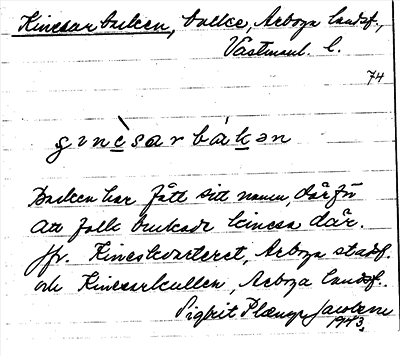 Kinesarbacken, backe, Arboga landsf.,
Västmanl. l.
74
Backen har fått sitt namn, därför
att folk brukade kinesa där.
Jfr. Kineskvarteret, Arboga stadsf.
och Kinesarkullen, Arboga landsf.
Sigbrit Plænge Jacobson
1943.